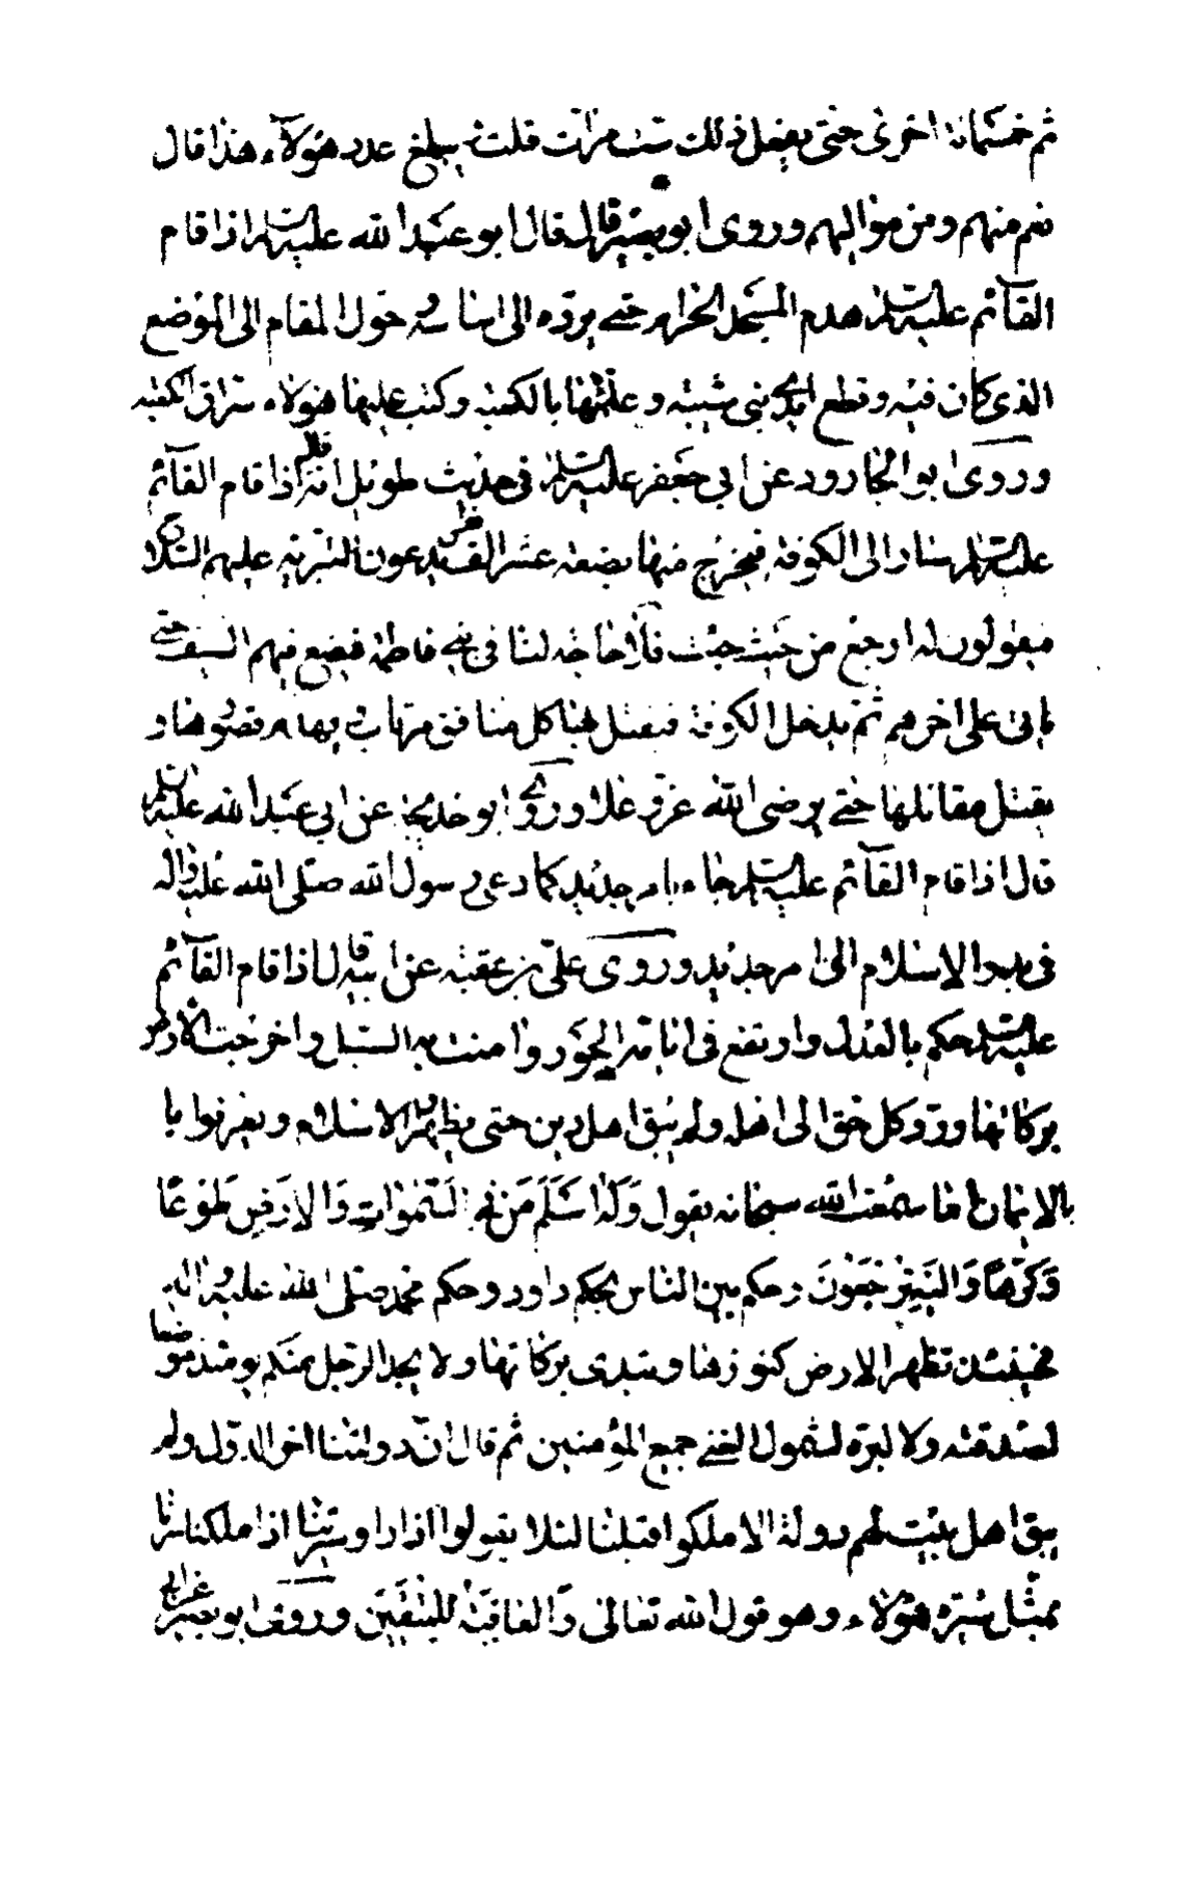 ثم خمسمائة اخرى حتى يفعل ذلك ست مرات قلت يبلغ عدد هؤلاء هذا قال
نعم منهم ومن مواليهم وروى ابو بصير قال قال ابو عبد الله عليه السلام اذا قام
القائم عليه السلام هدم المسجد الحرام حتى يرده الى اساسه وحول المقام الى الموضع
الذى كان فيه وقطع ايدى بنى شيبة وعلقها بالكعبة وكتب عليها هؤلاء سراق الكعبة
وروى ابو الجارود عن ابى جعفر عليه السلام فى حديث طويل انه قال اذا قام القائم
عليه السلام سار الى الكوفة فيخرج منها بضعة عشر الف نفس يدعون البترية عليهم السلاح
فيقولون له ارجع من حيث جئت فلا حاجة لنا فى بنى فاطمة فيضع فيهم السيف حتى
ياتى على اخرهم ثم يدخل الكوفة فيقتل بها كل منافق مرتاب ويهدم قصورها و
يقتل مقاتلها حتى يرضى الله عز وعلا وروى ابو خديجة عن ابى عبد الله عليه السلام
قال اذا قام القائم عليه السلام جاء بامر جديد كما دعى رسول الله صلى الله عليه واله
فى بدو الاسلام الى امر جديد وروى على بن عقبة عن ابيه قال اذا قام القائم
عليه السلام حكم بالعدل وارتفع فى ايامه الجور وامنت به السبل واخرجت الارض
بركاتها ورد كل حق الى اهله ولم يبق اهل دين حتى يظهروا الاسلام ويعترفوا با
بالايمان اما سمعت الله سبحانه يقول وَلَهُ اَسْلَمَ مَن فِى السَّمٰوَاتِ وَالاَرْضِ طَوْعًا
وَكَرْهًا وَاِلَيْهِ تُرْجَعُونَ وحكم بين الناس بحكم داود وحكم محمد صلى الله عليه واله
فحينئذ تظهر الارض كنوزها وتبدى بركاتها ولا يجد الرجل منكم يومئذ موضعا
لصدقته ولا لبره لشمول الغنى جميع المؤمنين ثم قال ان دولتنا اخر الدول ولم
يبق اهل بيت لهم دولة الا ملكوا قبلنا لئلا يقولوا اذا راوا سيرتنا اذا ملكنا سرنا
بمثل سيرة هؤلاء وهو قول الله تعالى والعاقبة للمتقين وروى ابو بصير عن ابى